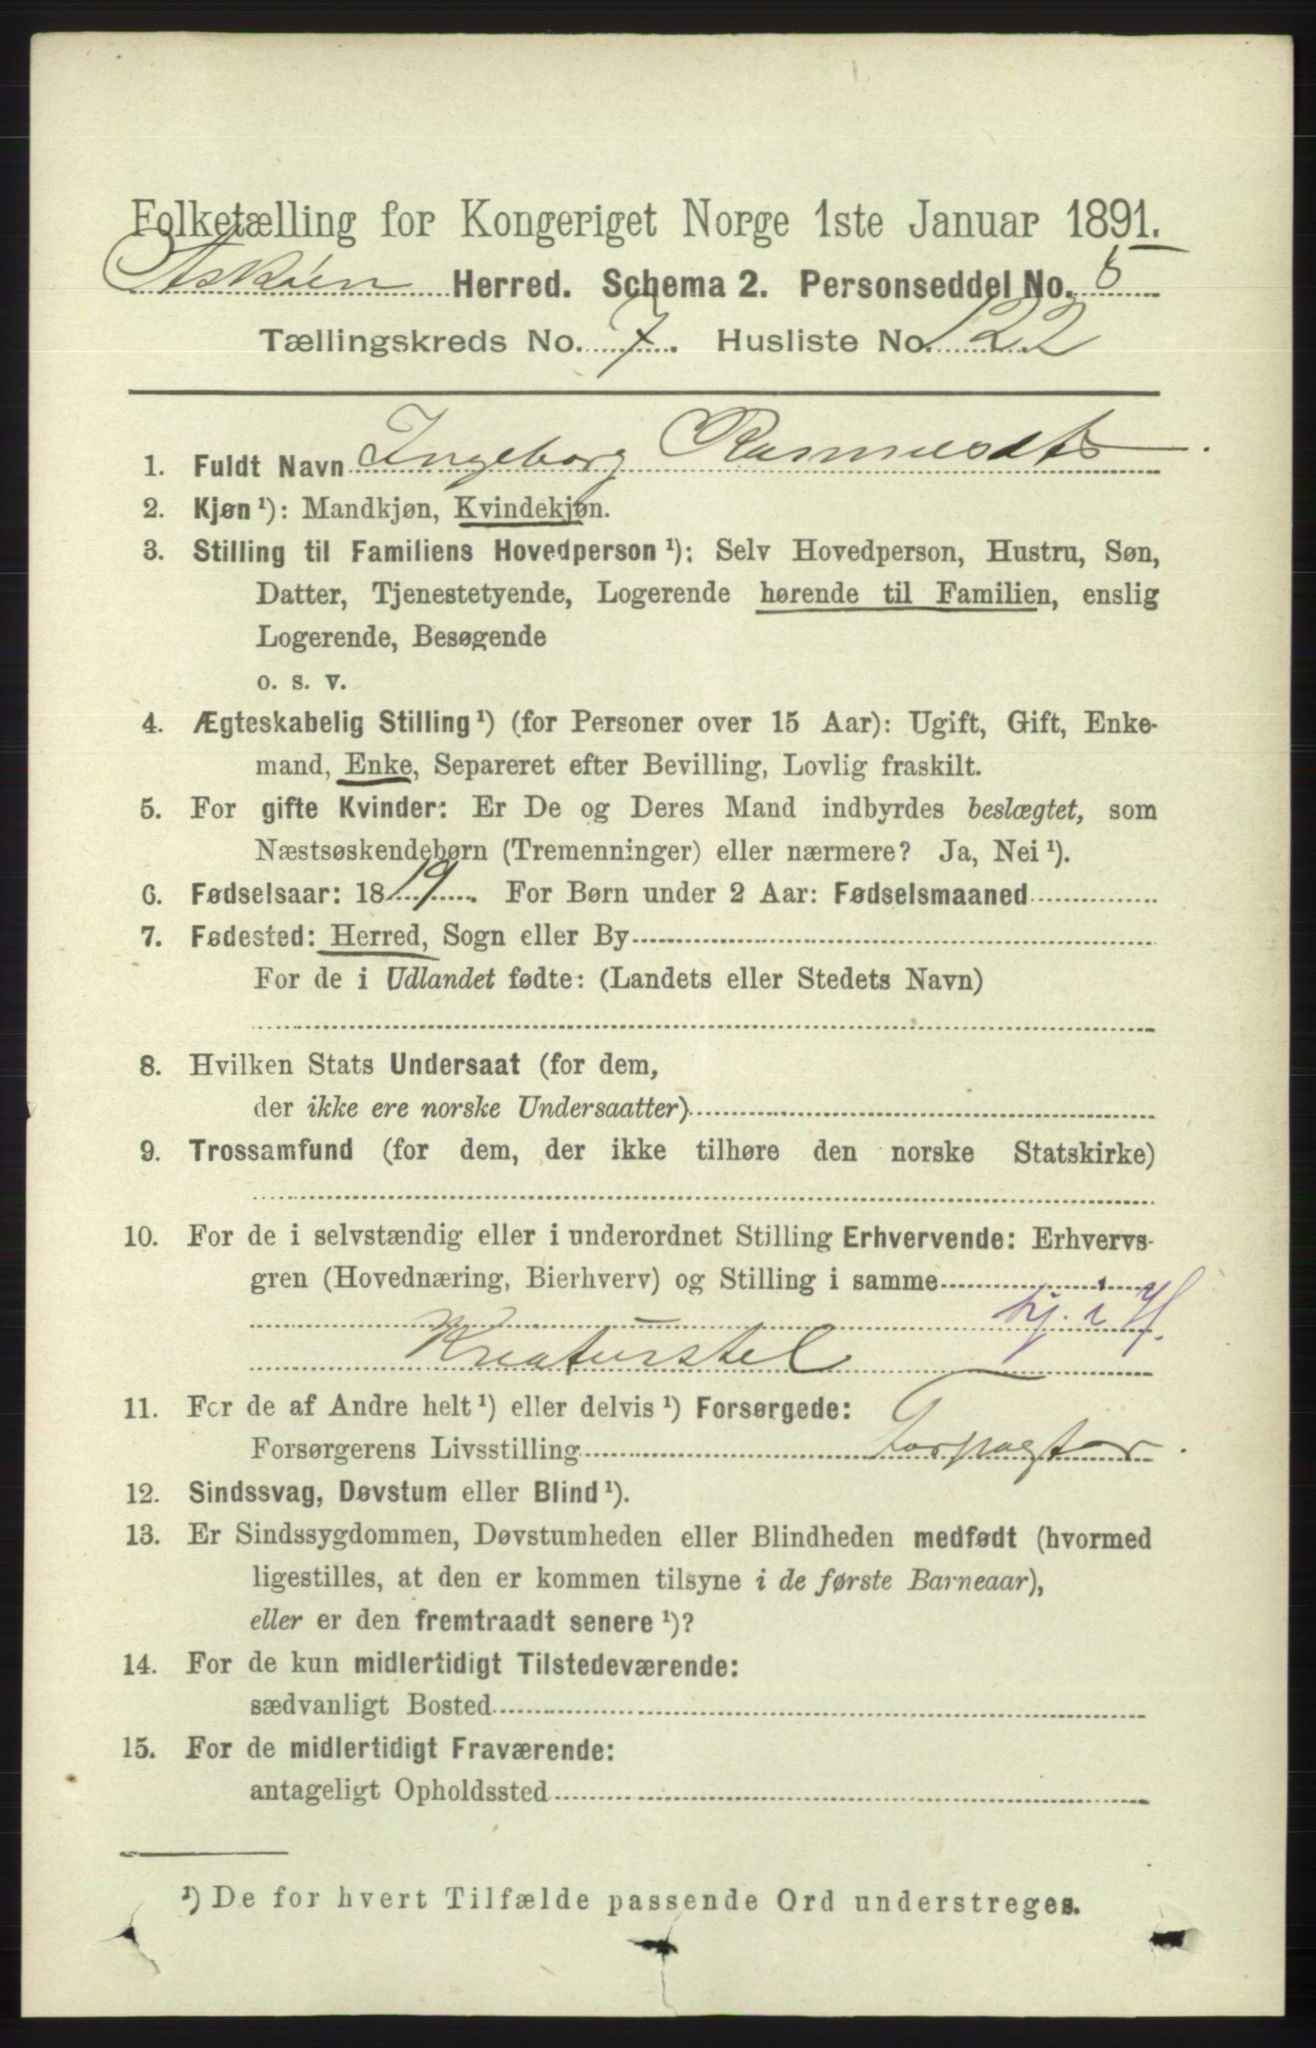 Folketælling for Kongeriget Norge 1ste Januar 1891.
Askøen Herred. Schema 2. Personseddel No. 5
Tællingskreds No. 7. Husliste No. 122
1. Fuldt Navn Ingeborg Rasmusdtr.
2. Kjøn ¹): Mandkjøn, Kvindekjøn.
3. Stilling til Familiens Hovedperson ¹): Selv Hovedperson, Hustru, Søn,
Datter, Tjenestetyende, Logerende hørende til Familien, enslig
Logerende, Besøgende
o. s. v.
4. Ægteskabelig Stilling ¹) (for Personer over 15 Aar): Ugift, Gift, Enke-
mand, Enke, Separeret efter Bevilling, Lovlig fraskilt.
5. For gifte Kvinder: Er De og Deres Mand indbyrdes beslægtet, som
Næstsøskendebørn (Tremenninger) eller nærmere? Ja, Nei ¹).
6. Fødselsaar: 1819. For Børn under 2 Aar: Fødselsmaaned
7. Fødested: Herred, Sogn eller By
For de i Udlandet fødte: (Landets eller Stedets Navn)
8. Hvilken Stats Undersaat (for dem,
der ikke ere norske Undersaatter)
9. Trossamfund (for dem, der ikke tilhøre den norske Statskirke)
10. For de i selvstændig eller i underordnet Stilling Erhvervende: Erhvervs-
gren (Hovednæring, Bierhverv) og Stilling i samme
hj. i H.
Kreaturstel
11. For de af Andre helt ¹) eller delvis ¹) Forsørgede:
Forsørgerens Livsstilling Forpagter.
12. Sindssvag, Døvstum eller Blind ¹).
13. Er Sindssygdommen, Døvstumheden eller Blindheden medfødt (hvormed
ligestilles, at den er kommen tilsyne i de første Barneaar),
eller er den fremtraadt senere ¹)?
14. For de kun midlertidigt Tilstedeværende:
sædvanligt Bosted
15. For de midlertidigt Fraværende:
antageligt Opholdssted
¹) De for hvert Tilfælde passende Ord understreges.